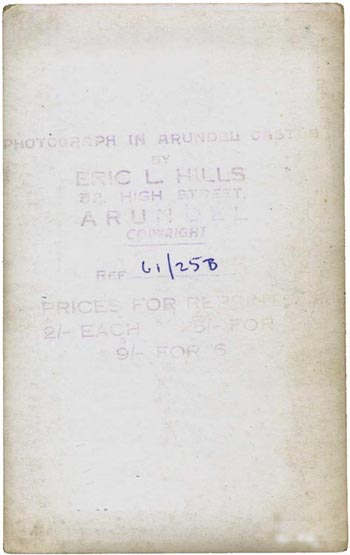 PHOTOGRAPH IN ARUNDEL CASTLE
BY
ERIC L. HILLS
32, HIGH STREET,
ARUNDEL
COPYRIGHT
REF 61/25B
PRICES FOR REPRINTS
2/- EACH 5/- FOR
9/- FOR 6